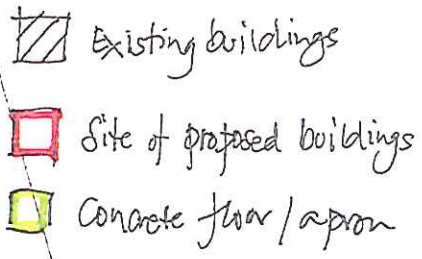 Existing buildings
Site of proposed buildings
Concrete floor / apron